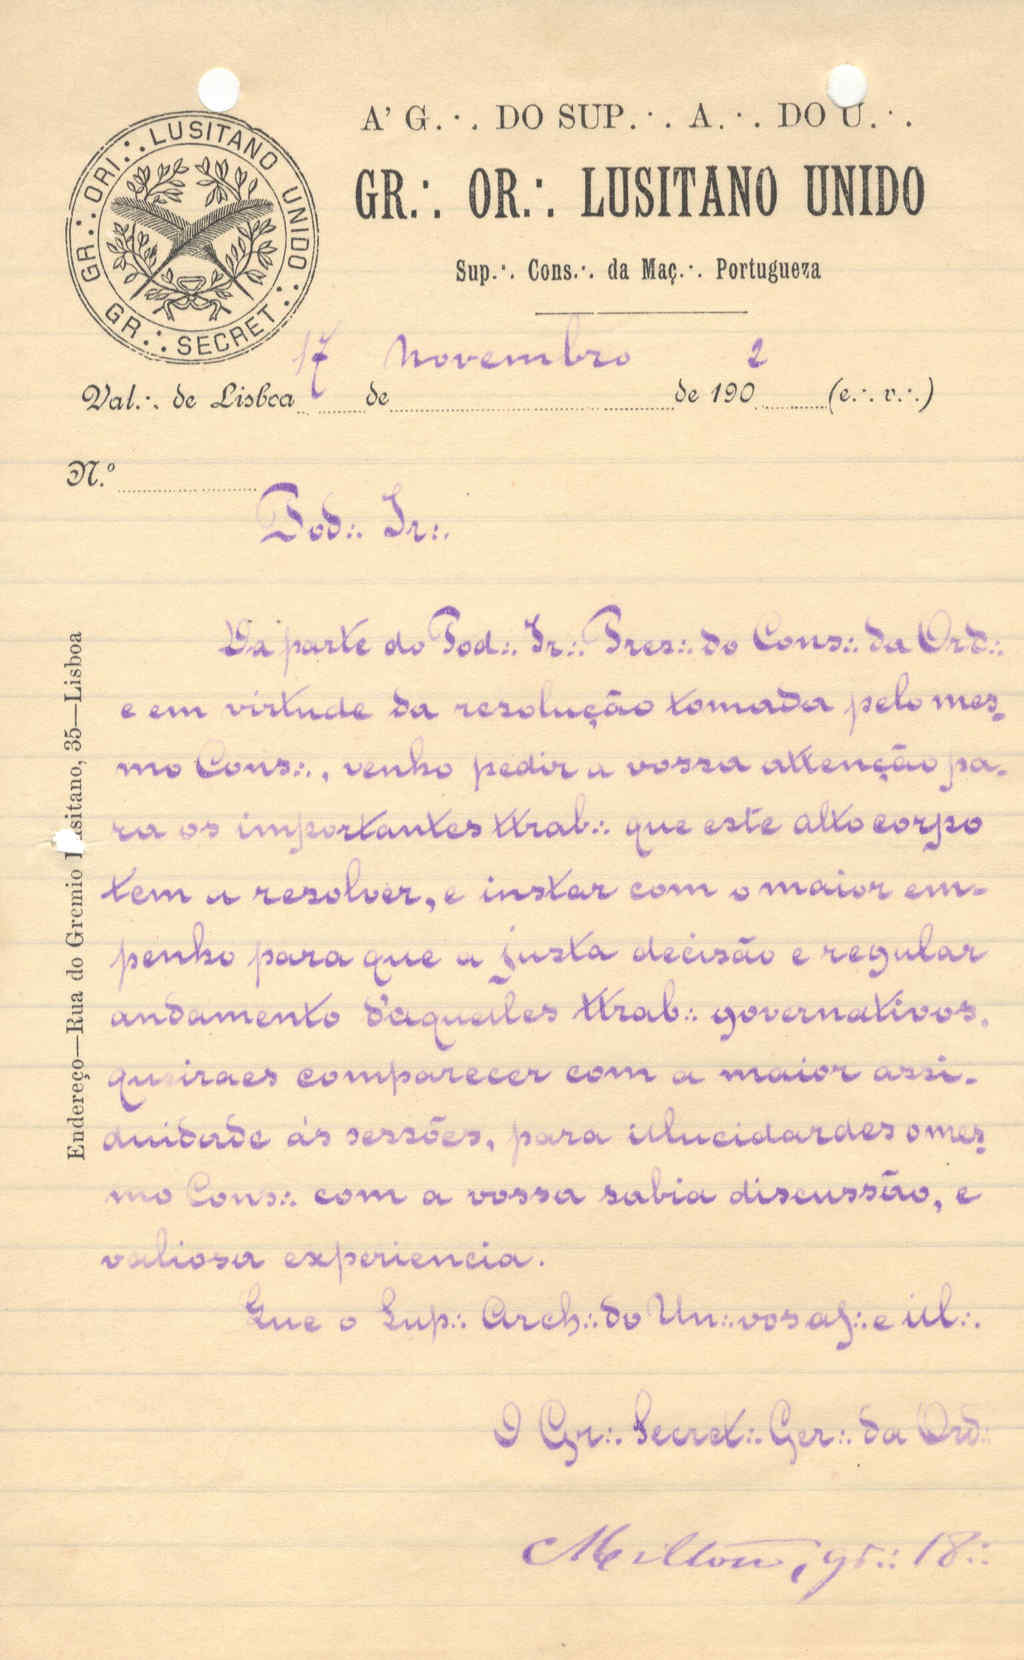 GR.·. ORI.·. LUSITANO UNIDO.·.
GR.·. SECRET.·.
A' G.·. DO SUP.·. A.·. DO U.·.
GR.·. OR.·. LUSITANO UNIDO
Sup.·. Cons.·. da Maç.·. Portugueza
Val.·. de Lisboa 17 de Novembro de 1902 (e.·. v.·.)
N.º
Pod.·. Ir.·.
Da parte do Pod.·. Ir.·. Pres.·. do Cons.·. da Ord.·.
e em virtude da resolução tomada pelo mes-
mo Cons.·., venho pedir a vossa attenção pa-
ra os importantes ttrab.·. que este alto corpo
tem a resolver, e instar com o maior em-
penho para que a justa decisão e regular
andamento d'aquelles ttrab.·. governativos,
queiraes comparecer com a maior assi-
duidade ás sessões, para illucidardes o mes-
mo Cons.·. com a vossa sabia discussão, e
valiosa experiencia.
Que o Sup.·. Arch.·. do Un.·. vos aj.·. e ill.·.
O Gr.·. Secret.·. Ger.·. da Ord.·.
Milton, gr.·. 18.·.
Endereço—Rua do Gremio Lusitano, 35—Lisboa